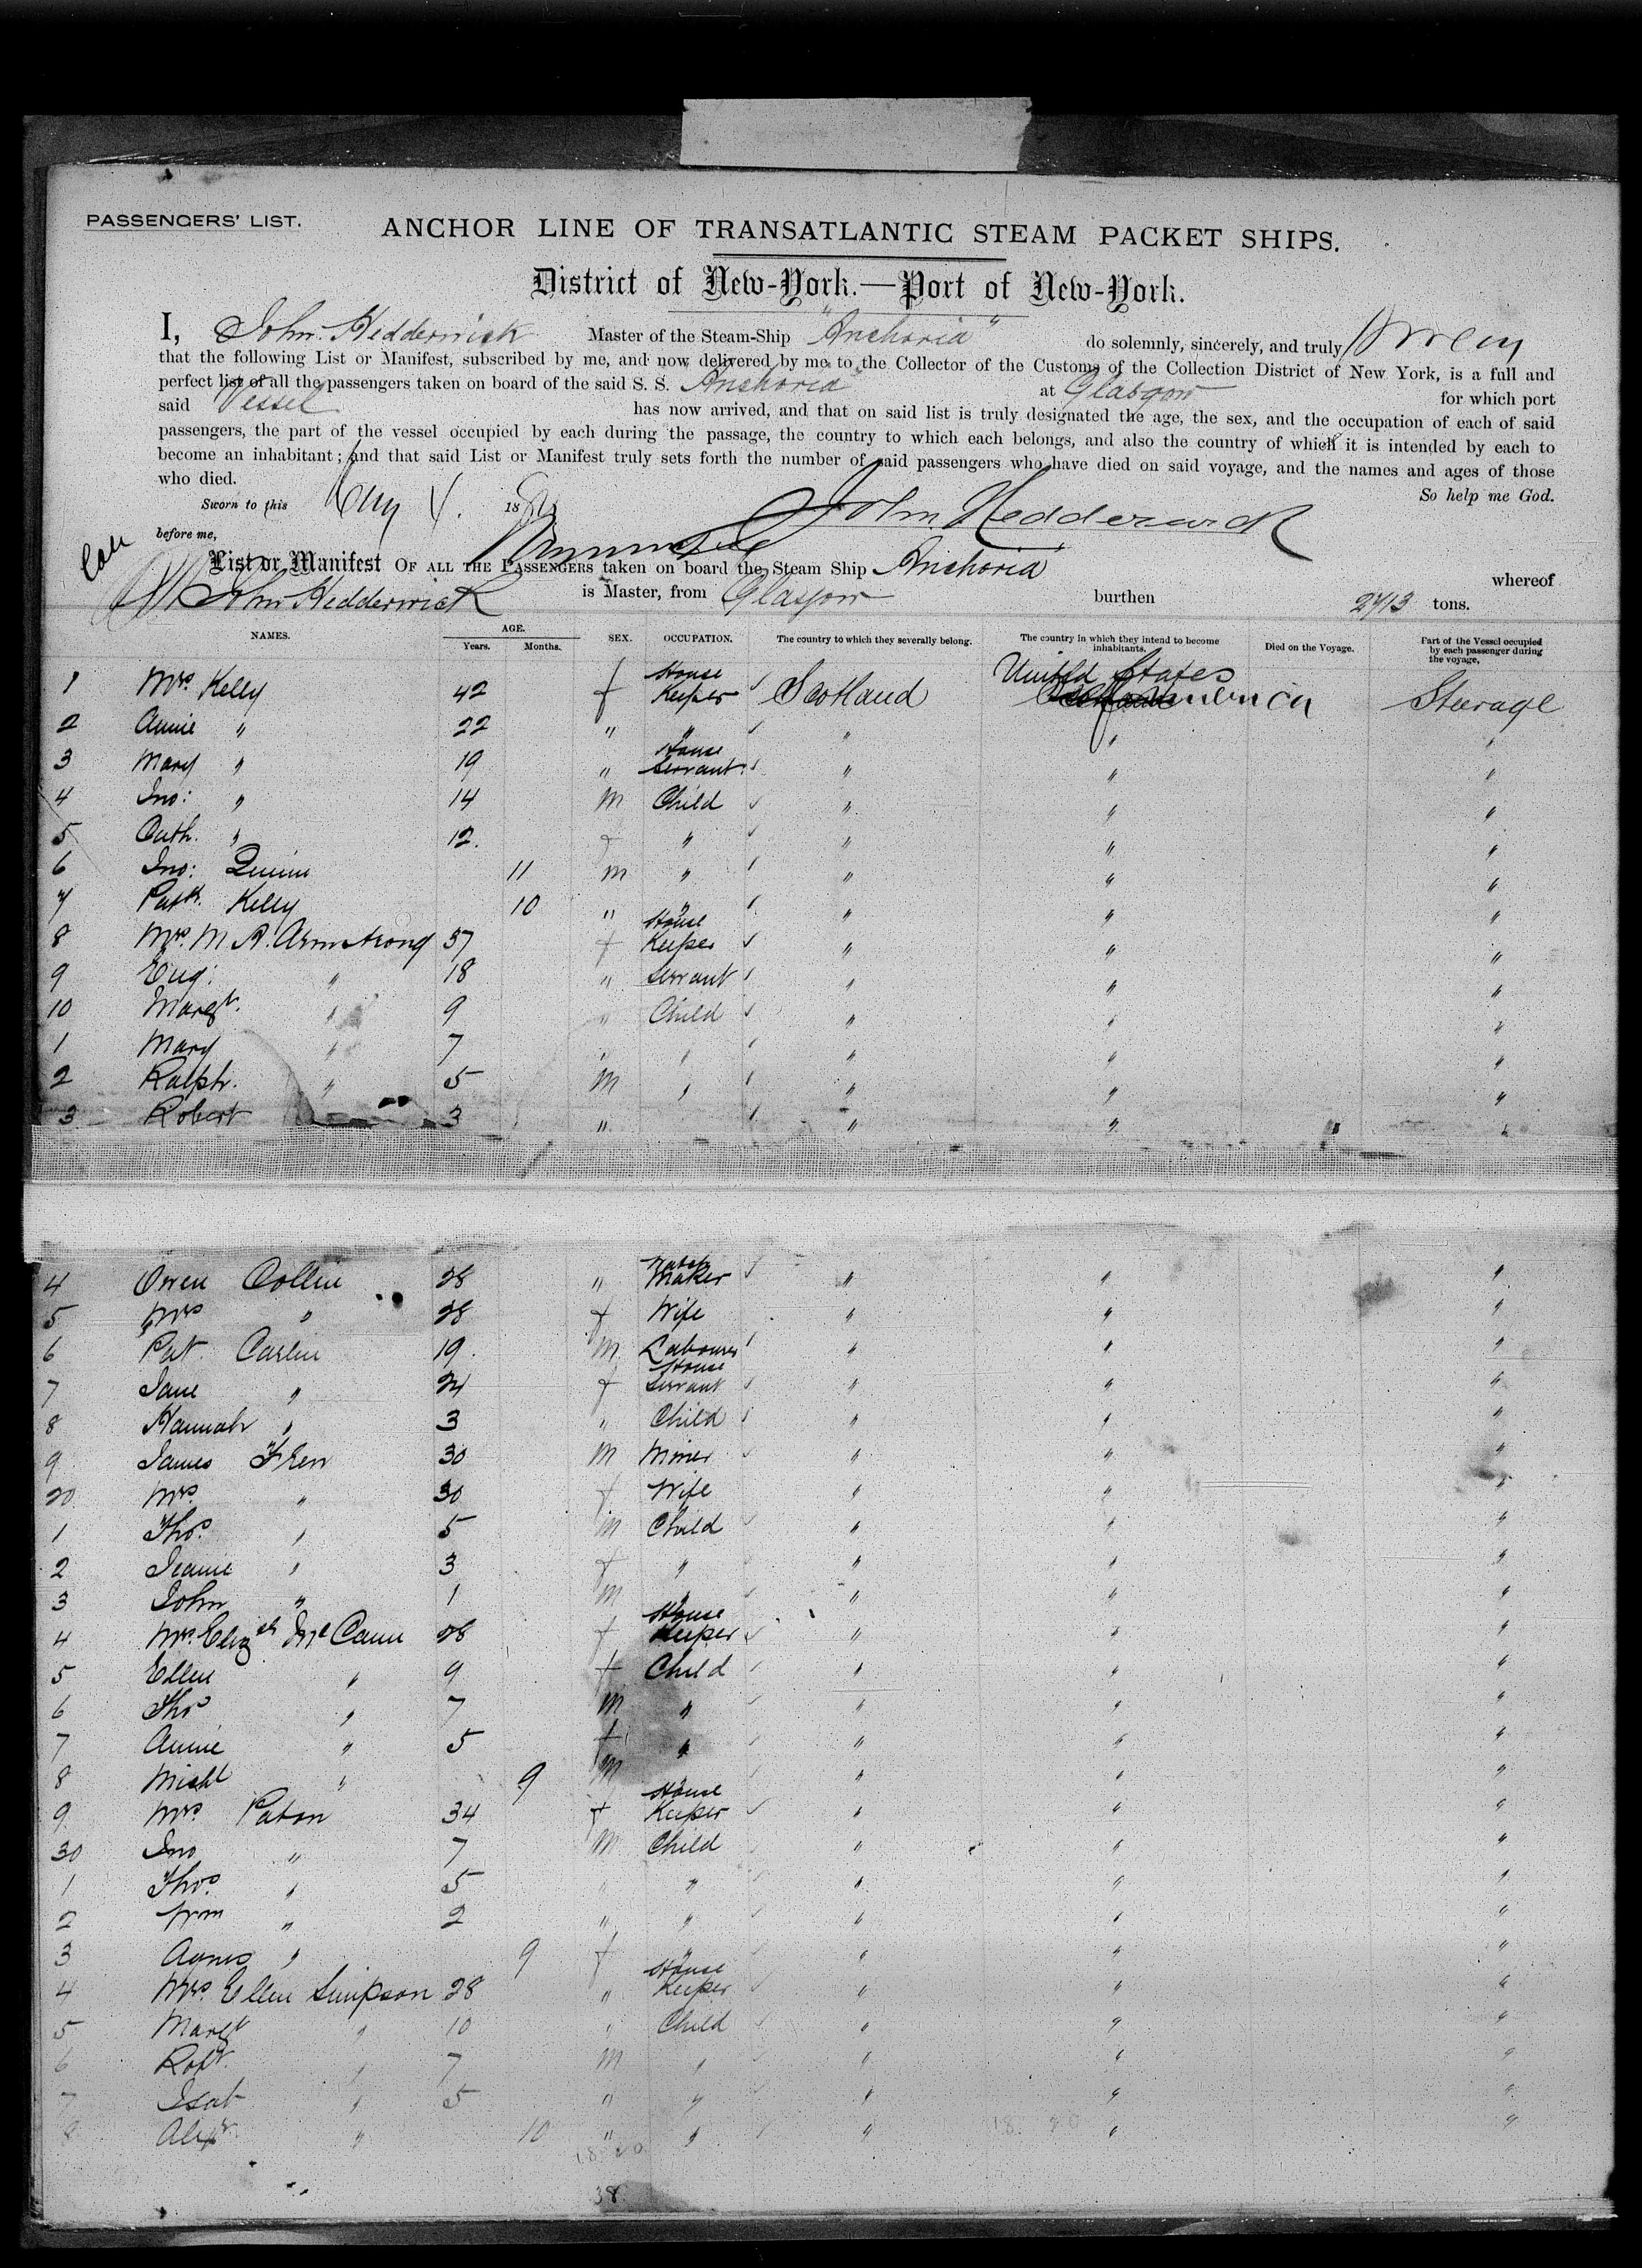 PASSENGERS' LIST.
ANCHOR LINE OF TRANSATLANTIC STEAM PACKET SHIPS.
District of New-York.—Port of New-York.
I, John Hedderwick Master of the Steam-Ship "Anchoria" do solemnly, sincerely, and truly swear
that the following List or Manifest, subscribed by me, and now delivered by me to the Collector of the Customs of the Collection District of New York, is a full and
perfect list of all the passengers taken on board of the said S. S. Anchoria at Glasgow for which port
said Vessel has now arrived, and that on said list is truly designated the age, the sex, and the occupation of each of said
passengers, the part of the vessel occupied by each during the passage, the country to which each belongs, and also the country of which it is intended by each to
become an inhabitant; and that said List or Manifest truly sets forth the number of said passengers who have died on said voyage, and the names and ages of those
who died. So help me God.
Sworn to this 4. 18 John Hedderwick
before me,
List or Manifest OF ALL THE PASSENGERS taken on board the Steam Ship Anchoria whereof
John Hedderwick is Master, from Glasgow burthen 2713 tons.
NAMES. AGE. Years. Months. SEX. OCCUPATION. The country to which they severally belong. The country in which they intend to become inhabitants. Died on the Voyage. Part of the Vessel occupied by each passenger during the voyage.
1 Mrs Kelly 42 f House Keeper Scotland United States America Steerage
2 Annie " 22 " " " " "
3 Mary " 19 " House Servant " " "
4 Jno: " 14 m Child " " "
5 Cath. " 12 f " " " "
6 Jno: Quinn 11 m " " " "
7 Patk. Kelly 10 " " " " "
8 Mrs. M. A. Armstrong 37 f House Keeper " " "
9 " 18 " Servant " " "
10 Margt. " 9 " Child " " "
1 Mary " 7 " " " " "
2 Ralph. " 5 m " " " "
3 Robert 3 " " " "
4 Owen Collin 28 " Maker " " "
5 Mrs " 28 f Wife " " "
6 Pat Carlin 19 m Labourer " " "
7 Jane " 24 f House Servant " " "
8 Hannah " 3 " Child " " "
9 James 30 m Miner " " "
20 Mrs. " 30 f Wife " " "
1 Thos. " 5 m Child " " "
2 Jeanie " 3 f " " " "
3 John " 1 m " " " "
4 Mrs. Elizth McCann 28 f House Keeper " " "
5 Ellen " 9 f Child " " "
6 Thos " 7 m " " " "
7 Annie " 5 f " " " "
8 Michl " 9 m " " "
9 Mrs Paton 34 f House Keeper " " "
30 Jno " 7 m Child " " "
1 Thos. " 5 " " " " "
2 Wm " 2 " " " " "
3 Agnes " 9 f " " " "
4 Mrs. Ellen Simpson 28 " House Keeper " " "
5 Margt " 10 " Child " " "
6 Robt. " 7 m " " " "
7 Isab " 5 " " " " "
8 Alexr. " 10 " " " " "
38